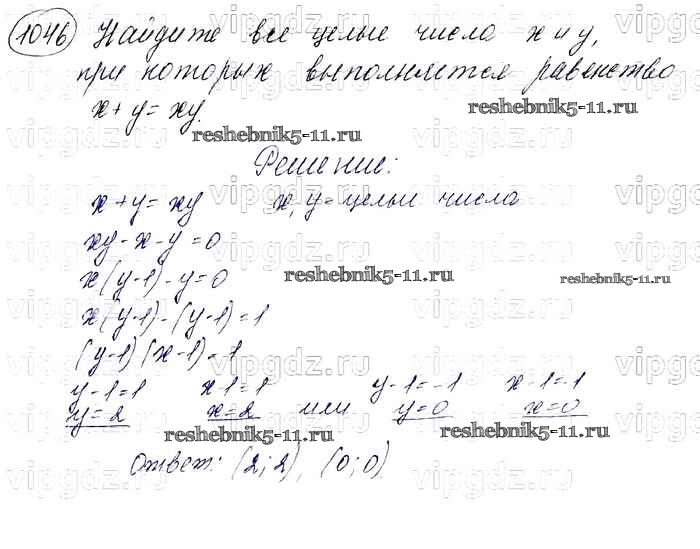 1046 Найдите все целые числа x и y,
при которых выполняется равенство
x + y = xy.
reshebnik5-11.ru
Решение:
x + y = xy x, y - целые числа
xy - x - y = 0
x(y-1) - y = 0
reshebnik5-11.ru
reshebnik5-11.ru
x(y-1) - (y-1) = 1
(y-1)(x-1) = 1
y-1=1 x-1=1 y-1=-1 x-1=-1
y=2 x=2 или y=0 x=0
reshebnik5-11.ru
reshebnik5-11.ru
Ответ: (2; 2), (0; 0)
vipgdz.ru